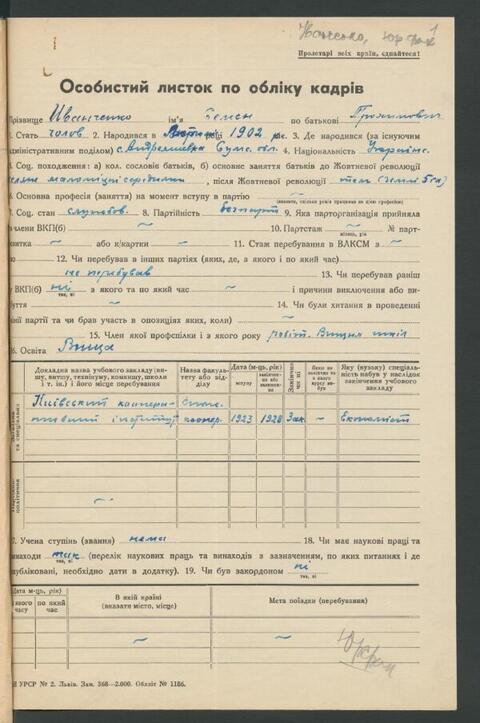 Юр фак 1
Пролетарі всіх країн, єднайтеся!
Особистий листок по обліку кадрів
Прізвище Іванченко ім'я Семен по батькові Трохимович
1. Стать чолов. 2. Народився в 1902 р. 3. Де народився (за існуючим
адміністративним поділом) с. Андреяшівка Сумс. обл. 4. Національність Українс.
5. Соц. походження: а) кол. сословіє батьків, б) основне заняття батьків до Жовтневої революції
селяне маломіцні середняки, після Жовтневої революції теж (землі 5 га)
6. Основна професія (заняття) на момент вступу в партію ~
(вкажіть, скільки років працював по цій професії)
7. Соц. стан службов. 8. Партійність безпарт 9. Яка парторганізація прийняла
в члени ВКП(б) ~ 10. Партстаж ~ № парт-
місяць, рік
квитка ~ або к/картки ~ 11. Стаж перебування в ВЛКСМ з ~
по ~ 12. Чи перебував в інших партіях (яких, де, з якого і по який час)
не перебував 13. Чи перебував раніш
у ВКП(б) ні з якого та по який час ~ і причини виключення або ви-
так, ні
буття ~ 14. Чи були хитання в проведенні
лінії партії та чи брав участь в опозиціях яких, коли) ~
15. Член якої профспілки і з якого року робіт. Вищих шкіл
16. Освіта Вища
Докладна назва учбового закладу (ви-
шу, витшу, технікуму, комвишу, школи
і т. ін.) і його місце перебування
Назва факуль-
тету або від-
ділу
Дата (м-ць, рік)
вступу
закінчен-
ня або вибуття
Закінчив
чи ні
Якщо не
закінчив то
з якого
курсу ви-
був
Яку (вузьку) спеціаль-
ність набув у наслідок
закінчення учбового
закладу
Загальна
та спеціальна
Київський коопера-
тивний інститут коопер. 1923 1928 Зак. ~ Економіст
політична
~
17. Учена ступінь (звання) нема 18. Чи має наукові праці та
винаходи так (перелік наукових праць та винаходів з зазначенням, по яких питаннях і де
так, ні
опубліковані, необхідно дати в додатку). 19. Чи був закордоном ні
так, ні
Дата м-ць, рік)
з якого
часу
по який
час
В якій країні
(вказати місто, місце)
Мета поїздки (перебування)
~ ~
УРСР № 2. Львів. Зам. 368—2.000. Обліт № 1186.